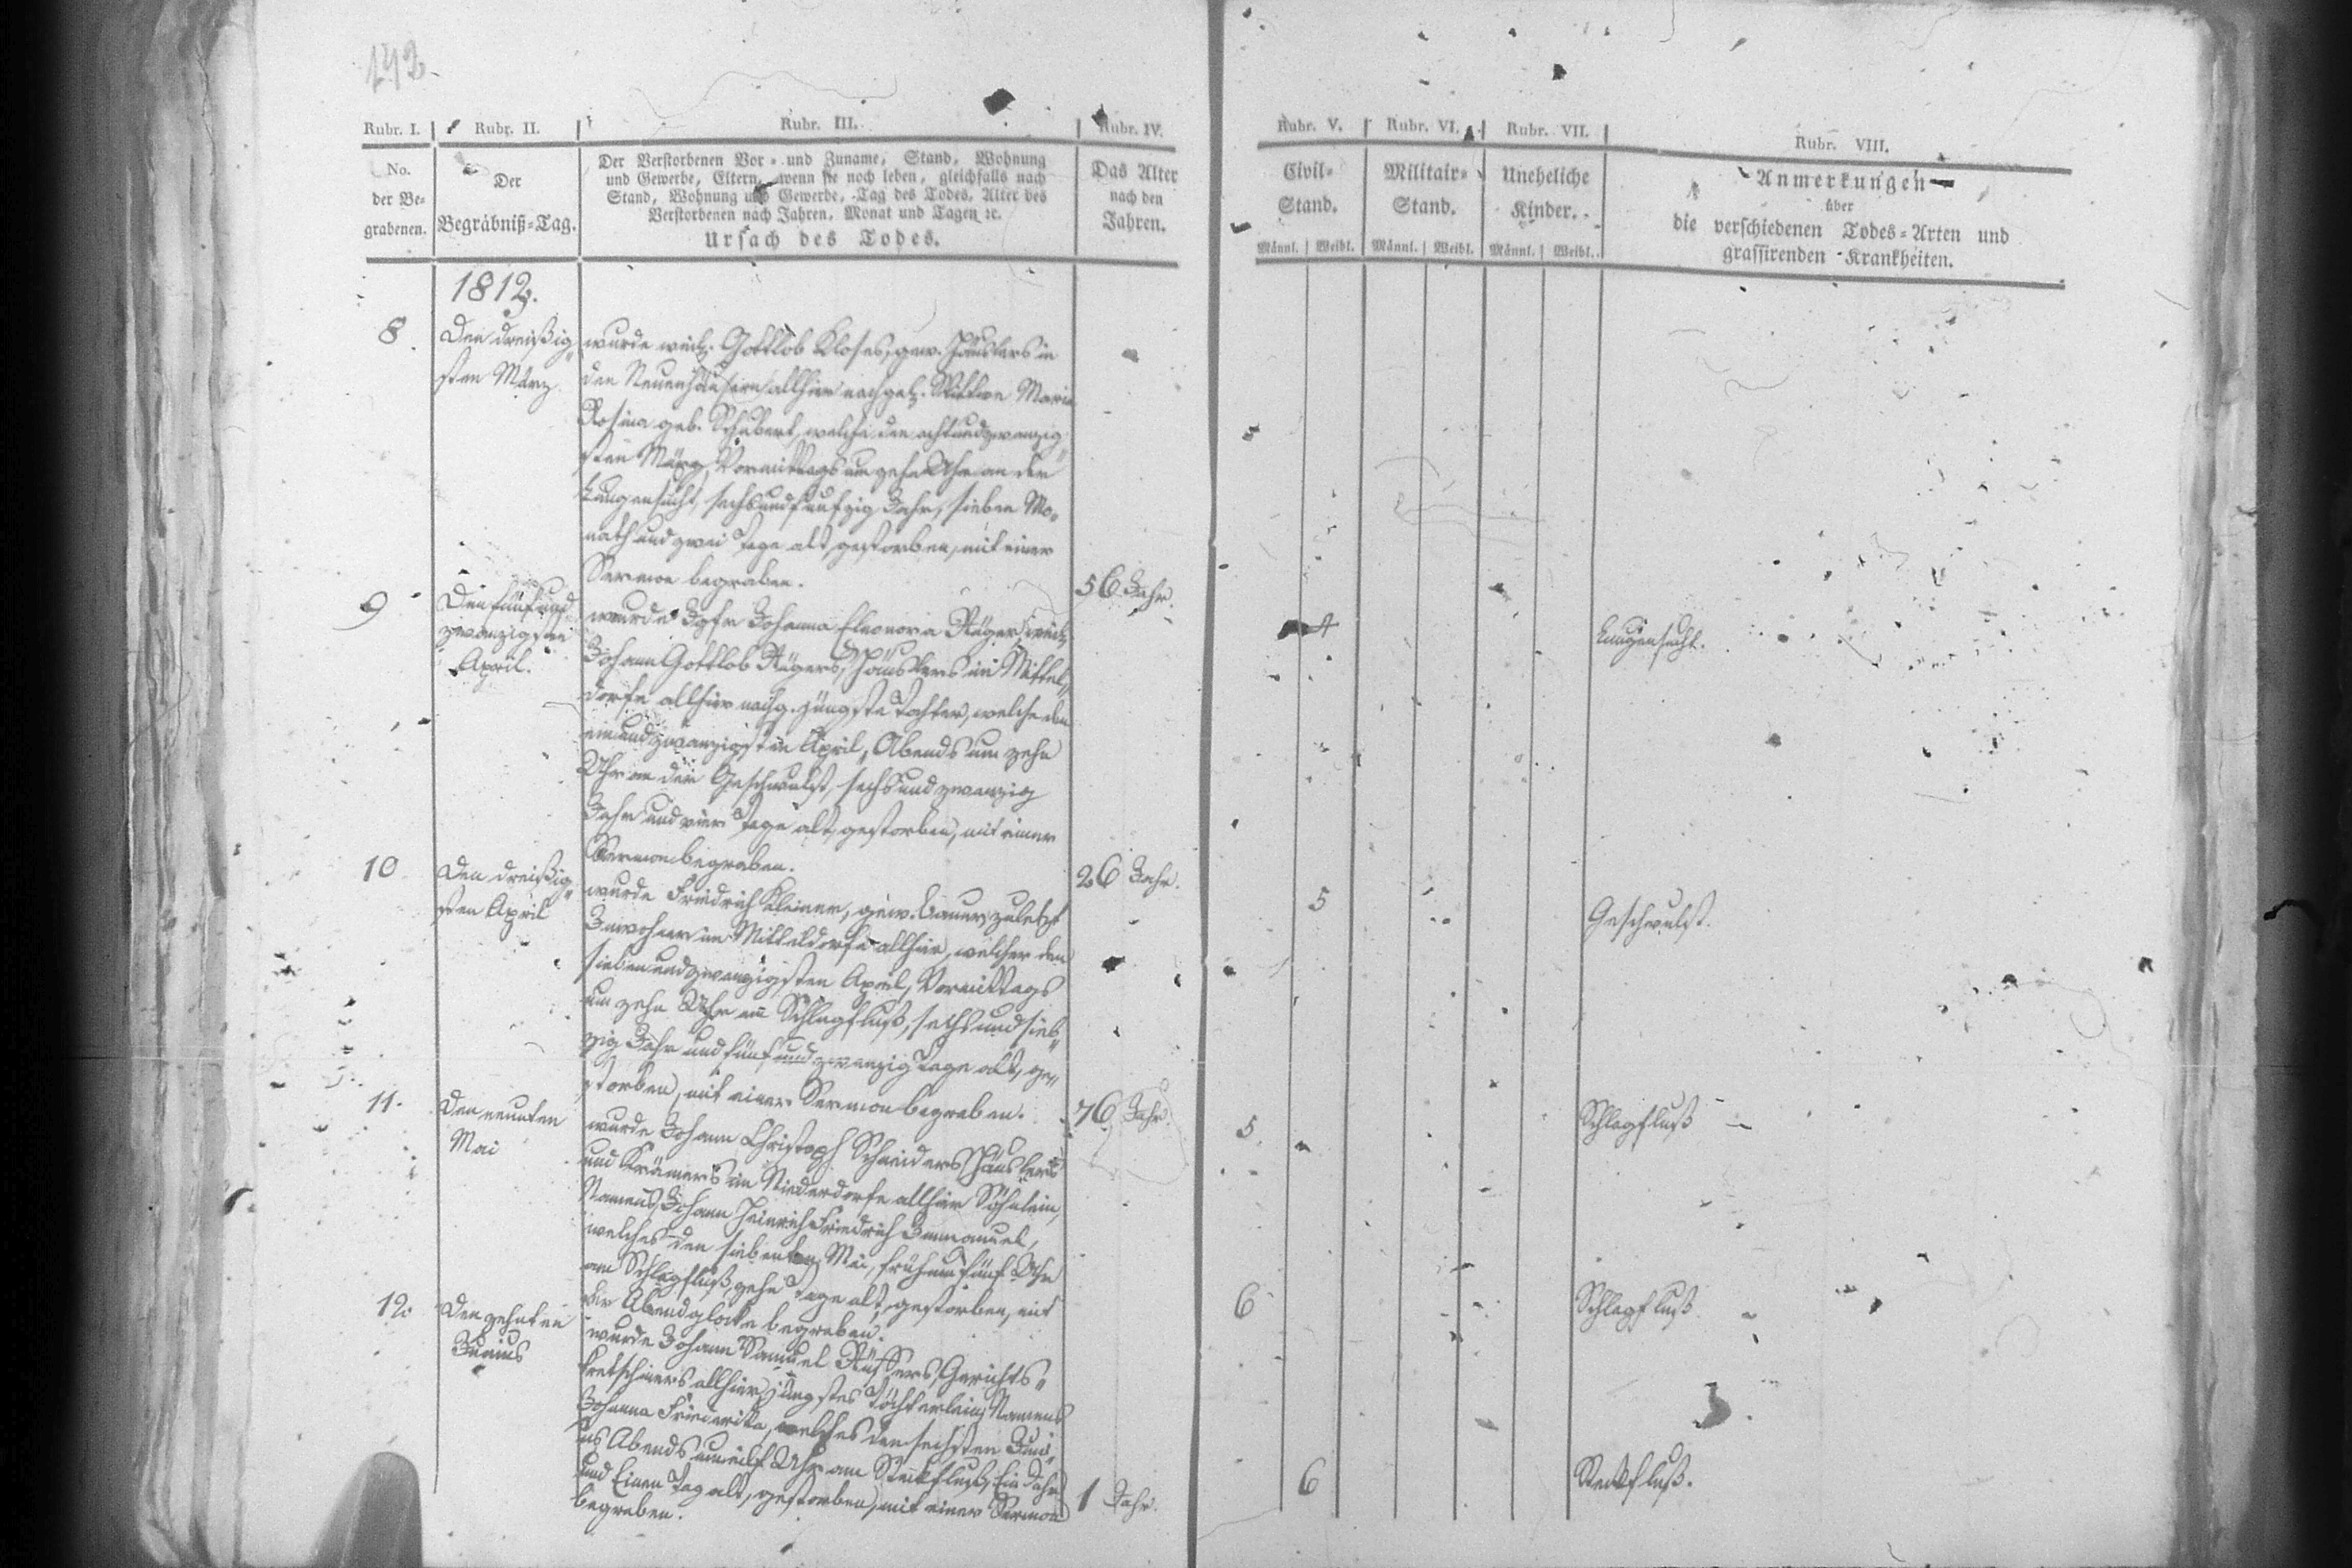 142.
Rubr. I. Rubr. II. Rubr. III. Rubr. IV. Rubr. V. Rubr. VI. Rubr. VII. Rubr. VIII.
No.
der Be-
grabenen.
Der
Begräbniß-Tag.
Der Verstorbenen Vor- und Zuname, Stand, Wohnung
und Gewerbe, Eltern, wenn sie noch leben, gleichfalls nach
Stand, Wohnung und Gewerbe, Tag des Todes, Alter des
Verstorbenen nach Jahren, Monat und Tagen ꝛc.
Ursach des Todes.
Das Alter
nach den
Jahren.
Civil-
Stand.
Männl. Weibl.
Militair-
Stand.
Männl. Weibl.
Uneheliche
Kinder.
Männl. Weibl.
Anmerkungen
über
die verschiedenen Todes-Arten und
grassirenden Krankheiten.
1812.
8.
Den dreißig
sten März
wurde weil. Gottlob Kloses, gew. Häuslers in
den Neuenhäusern allhier nachgel. Wittwe Maria
Rosina geb. Schubert, welche den achtundzwanzig
sten März Vormittags um zehn Uhr an der
Lungensucht, sechsundfunfzig Jahr, sieben Mo-
nath und zwei Tage alt, gestorben, mit einer
Sermon begraben.
56 Jahr.
4
Lungensucht.
9
Den fünfund
zwanzigsten
April.
wurde Jgfr Johanna Eleonora weil.
Johann Gottlob Häuslers im Mittel-
dorfe allhier nachg. jüngste Tochter, welche den
einundzwanzigsten April, Abends um zehn
Uhr an der Geschwulst, sechsundzwanzig
Jahr und vier Tage alt, gestorben, mit einer
Sermon begraben.
26 Jahr.
5
Geschwulst.
10
Den dreißig
sten April
wurde Friedrich Kleiner, gew. Bauer zuletzt
Inwohner im Mitteldorfe allhier, welcher den
siebenundzwanzigsten April, Vormittags
um zehn Uhr am Schlagfluß, sechsundsieb-
zig Jahr und fünfundzwanzig Tage alt, ge-
storben, mit einer Sermon begraben.
76 Jahr.
5
Schlagfluß
11.
Den neunten
Mai
wurde Johann Christoph Schneiders Häuslers
und Krämers im Niederdorfe allhier Söhnlein,
Namens Johann Heinrich Friedrich Immanuel,
welches den siebenten Mai, früh um fünf Uhr
am Schlagfluß, zehn Tage alt, gestorben, mit
der Abendglocke begraben.
6
Schlagfluß.
12.
Den zehnten
Junius
wurde Johann Samuel Gerichts-
kretschmers allhier jüngstes Töchterlein, Namens
Johanna Friederika, welches den sechsten Juni-
us Abends um eilf Uhr am Steckfluß, Ein Jahr
und Einen Tag alt, gestorben, mit einer Sermon
begraben.
1 Jahr.
6
Steckfluß.